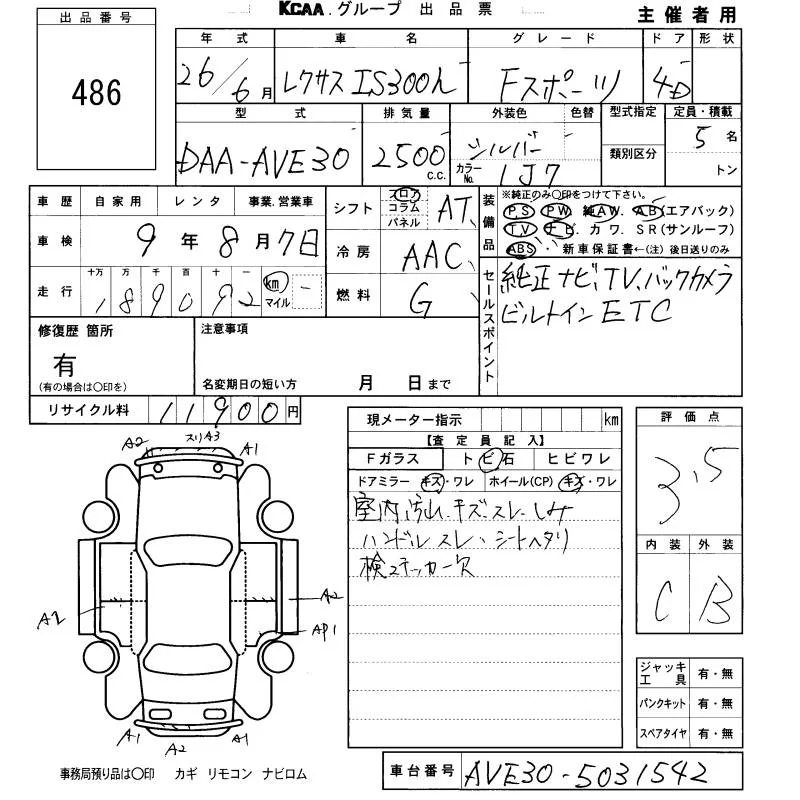 KCAA.グループ 出品票
主催者用
出品番号
486
年式 車名 グレード ドア 形状
26/6月 レクサス IS300h Fスポーツ 4D
型式 排気量 外装色 色替 型式指定 定員・積載
DAA-AVE30 2500 c.c. シルバー 類別区分 5名
カラーNo. 1J7 トン
車歴 自家用 レンタ 事業.営業車
シフト フロア コラム パネル AT
装備品 ※純正のみ○印をつけて下さい。
PS PW 純AW. AB(エアバック)
TV ナビ. カワ. SR(サンルーフ)
ABS 新車保証書←(注) 後日送りのみ
車検 9年8月7日
冷房 AAC
走行 十万 万 千 百 十 一
189092 km マイル
燃料 G
セールスポイント
純正ナビ、TV、バックカメラ
ビルトインETC
修復歴 箇所 注意事項
有
(有の場合は○印を) 名変期日の短い方 月 日まで
リサイクル料 11900円
現メーター指示 km
評価点
3.5
【査定員記入】
Fガラス トビ石 ヒビワレ
ドアミラー キズ・ワレ ホイール(CP) キズ・ワレ
室内汚れ.キズ.スレ.しみ
ハンドルスレ、シートヘタリ
検ステッカー欠
内装 外装
C B
A2 スリA3 A1
A2 A2
AP1
A1 A2 A1
ジャッキ工具 有・無
パンクキット 有・無
スペアタイヤ 有・無
事務局預り品は○印 カギ リモコン ナビロム
車台番号 AVE30-5031542